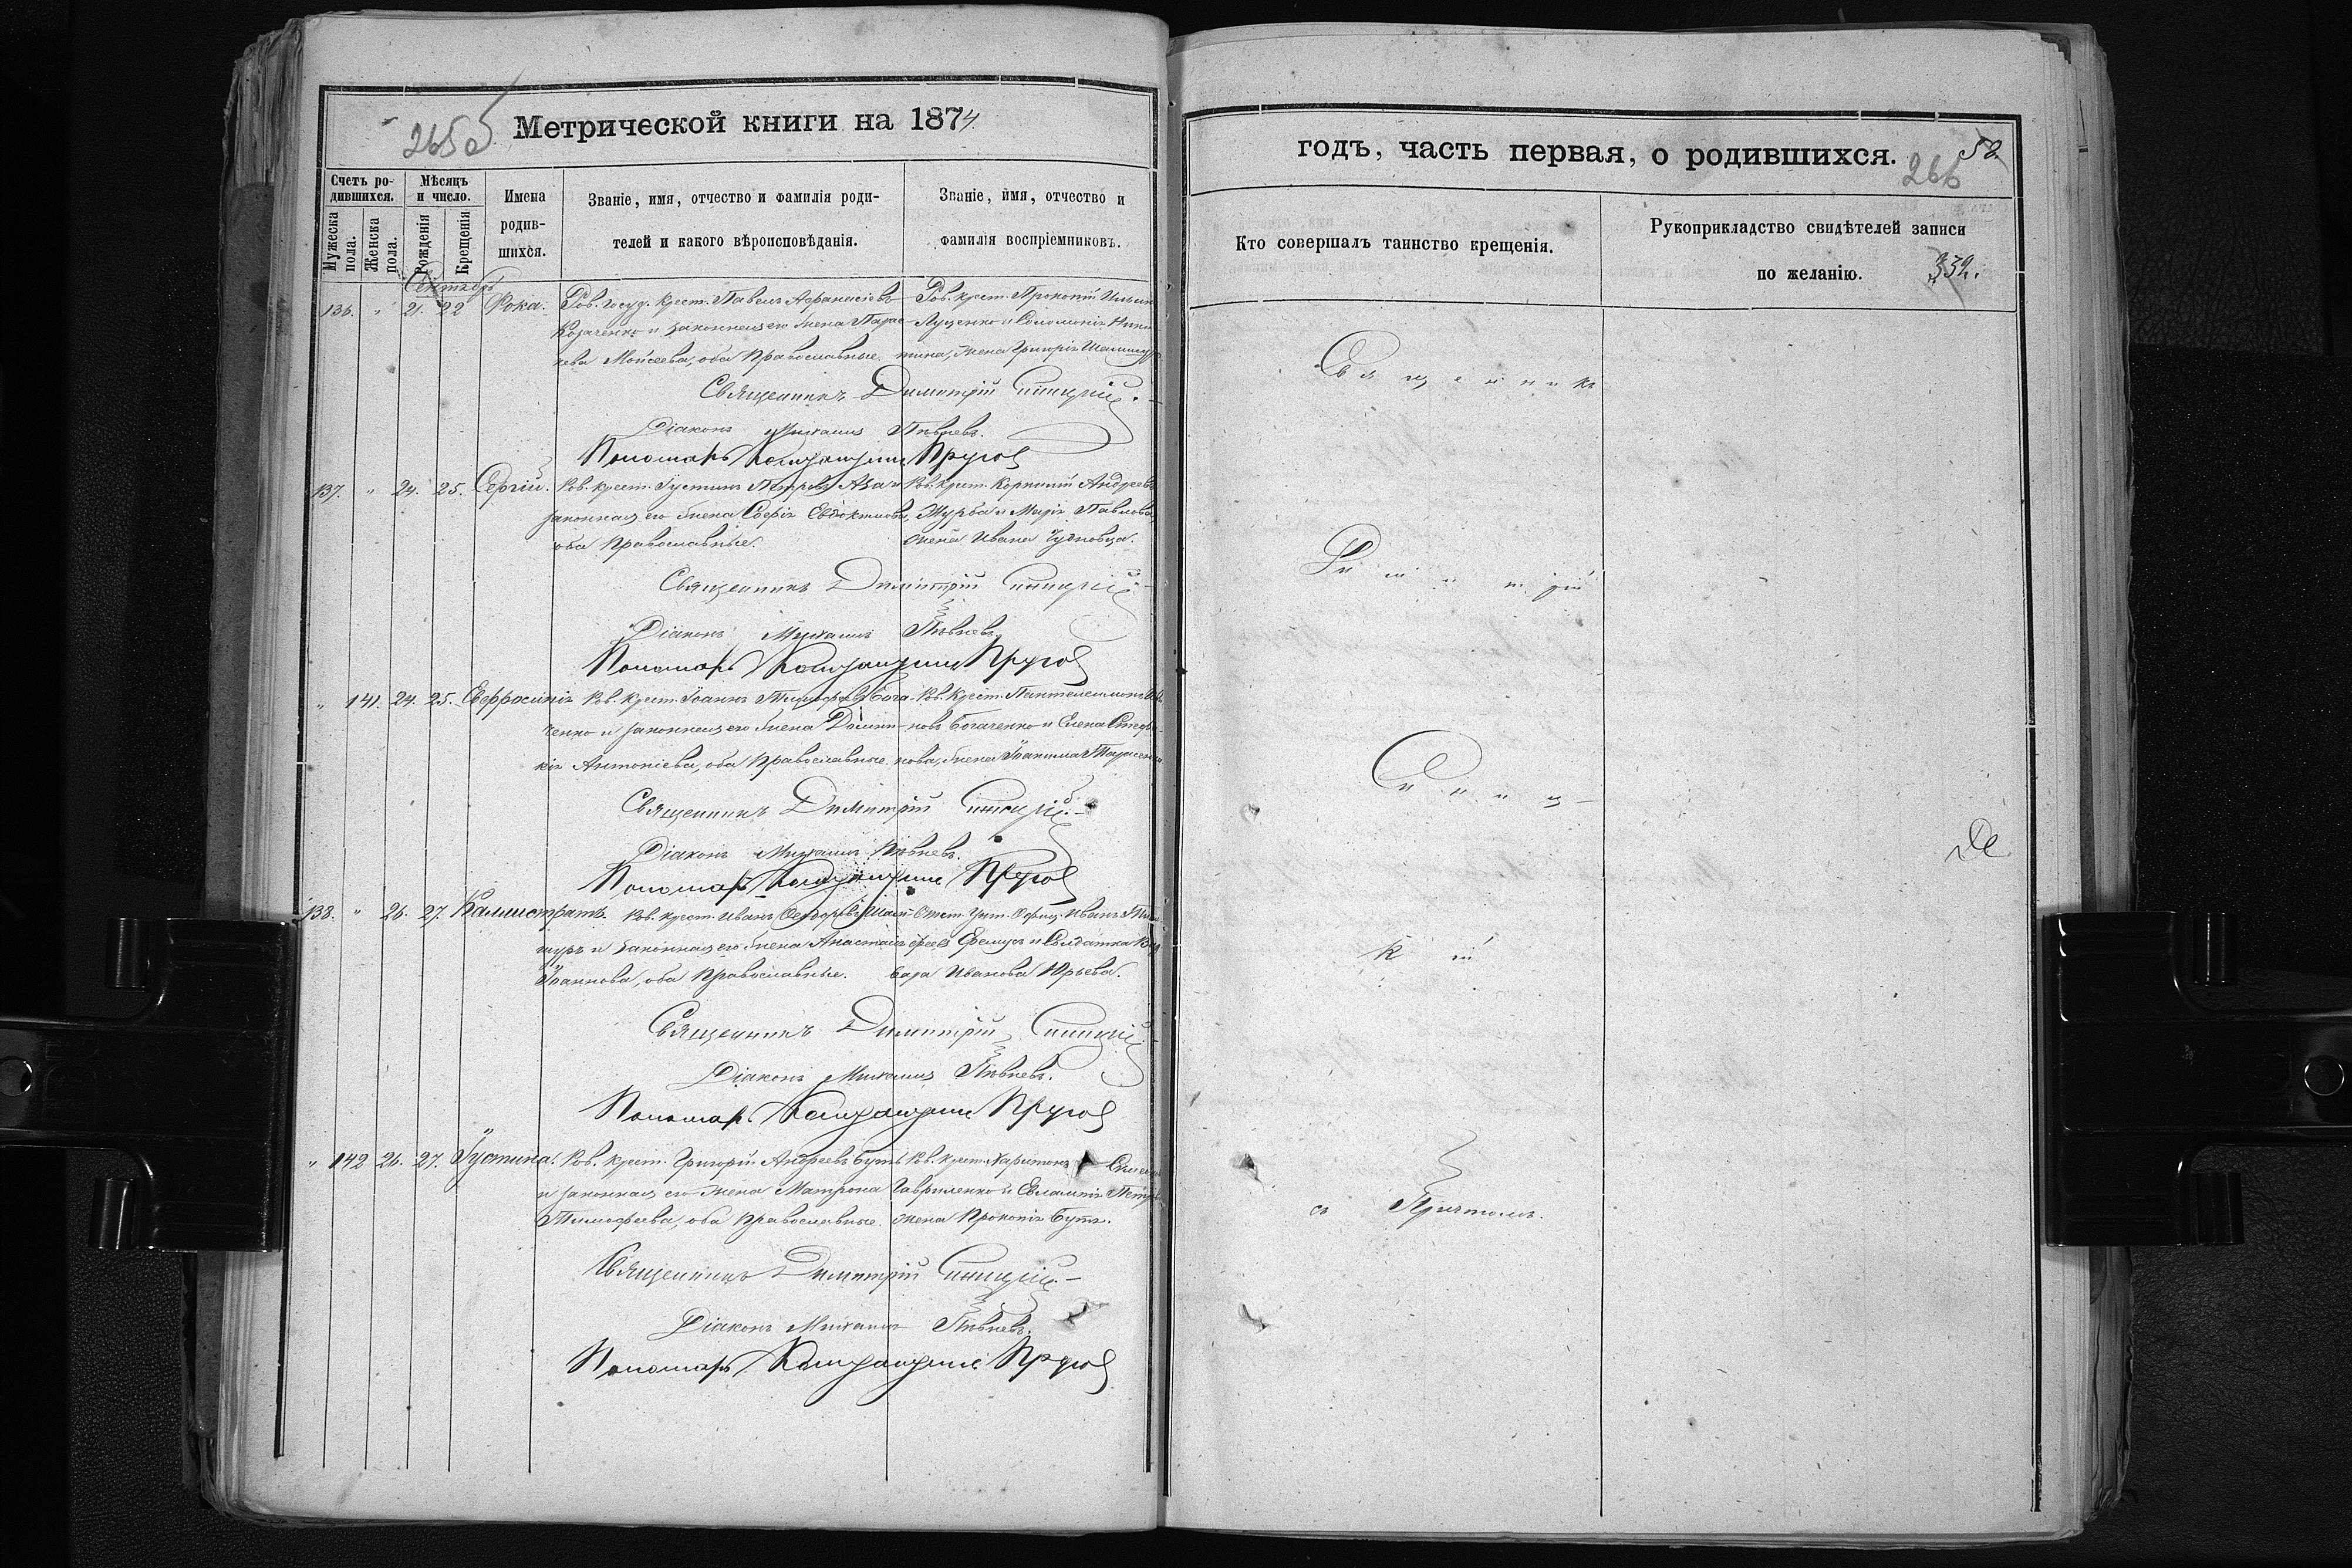 265 об
Метрической книги на 1874.
Счетъ ро-
дившихся.
Мужеска пола.
Женска пола.
Мѣсяцъ
и число.
Рожденія
Крещенія
Имена
родив-
шихся.
Званіе, имя, отчество и фамилія роди-
телей и какого вѣроисповѣданія.
Званіе, имя, отчество и
фамилія воспріемниковъ.
Сентябрь
136. " 21. 22 Фока. Ров. госуд. крест. Павелъ Афанасіевъ
Козаченко и законная его жена Парас-
кева Моисеева, оба Православные.
Ров. крест. Прокопій Ильинъ
Луценко и Соломонія Ники-
тина, жена Григорія
Священникъ Димитрій Синицкій.
Діаконъ Михаилъ Пѣвневъ.
Пономарь Константинъ
137. " 24. 25. Сергій. Ров. крест. Іустинъ Петровъ и
законная его жена Софія Евдокимова,
оба Православные.
Ров. крест. Корнилій Андреевъ
Журба и Марія Павлова,
жена Ивана
Священникъ Димитрій Синицкій.
Діаконъ Михаилъ Пѣвневъ.
Пономарь Константинъ
" 141. 24. 25. Евфросинія Ров. крест. Іоаннъ Тимофеевъ Бога-
ченко и законная его жена Домни-
кія Антоніева, оба Православные.
Ров. Крест. Пантелеимонъ
новъ Богаченко и Елена Стефа-
нова, жена Іоакима
Священникъ Димитрій Синицкій.
Діаконъ Михаилъ Пѣвневъ.
Пономарь Константинъ
138. " 26. 27. Каллистратъ. Ров. крест. Иванъ Федоровъ
и законная его жена Анастасія
Іоаннова, оба Православные.
Отст. Унт. Офиц. Иванъ
и Солдатка
Иванова Юрьева.
Священникъ Димитрій Синицкій.
Діаконъ Михаилъ Пѣвневъ.
Пономарь Константинъ
" 142 26. 27. Іустина. Ров. крест. Григорій Андреевъ Бутъ
и законная его жена Матрона
Тимофеева, оба Православные.
Ров. крест. Харитонъ
Гавриленко и Евлампія Петрова
жена Прокопія Бутъ.
Священникъ Димитрій Синицкій.
Діаконъ Михаилъ Пѣвневъ.
Пономарь Константинъ
годъ, часть первая, о родившихся.
58.
266
Кто совершалъ таинство крещенія.
Рукоприкладство свидѣтелей записи
по желанію.
339.
Священникъ
Димитрій
Синиц-
кій
съ Причтомъ.